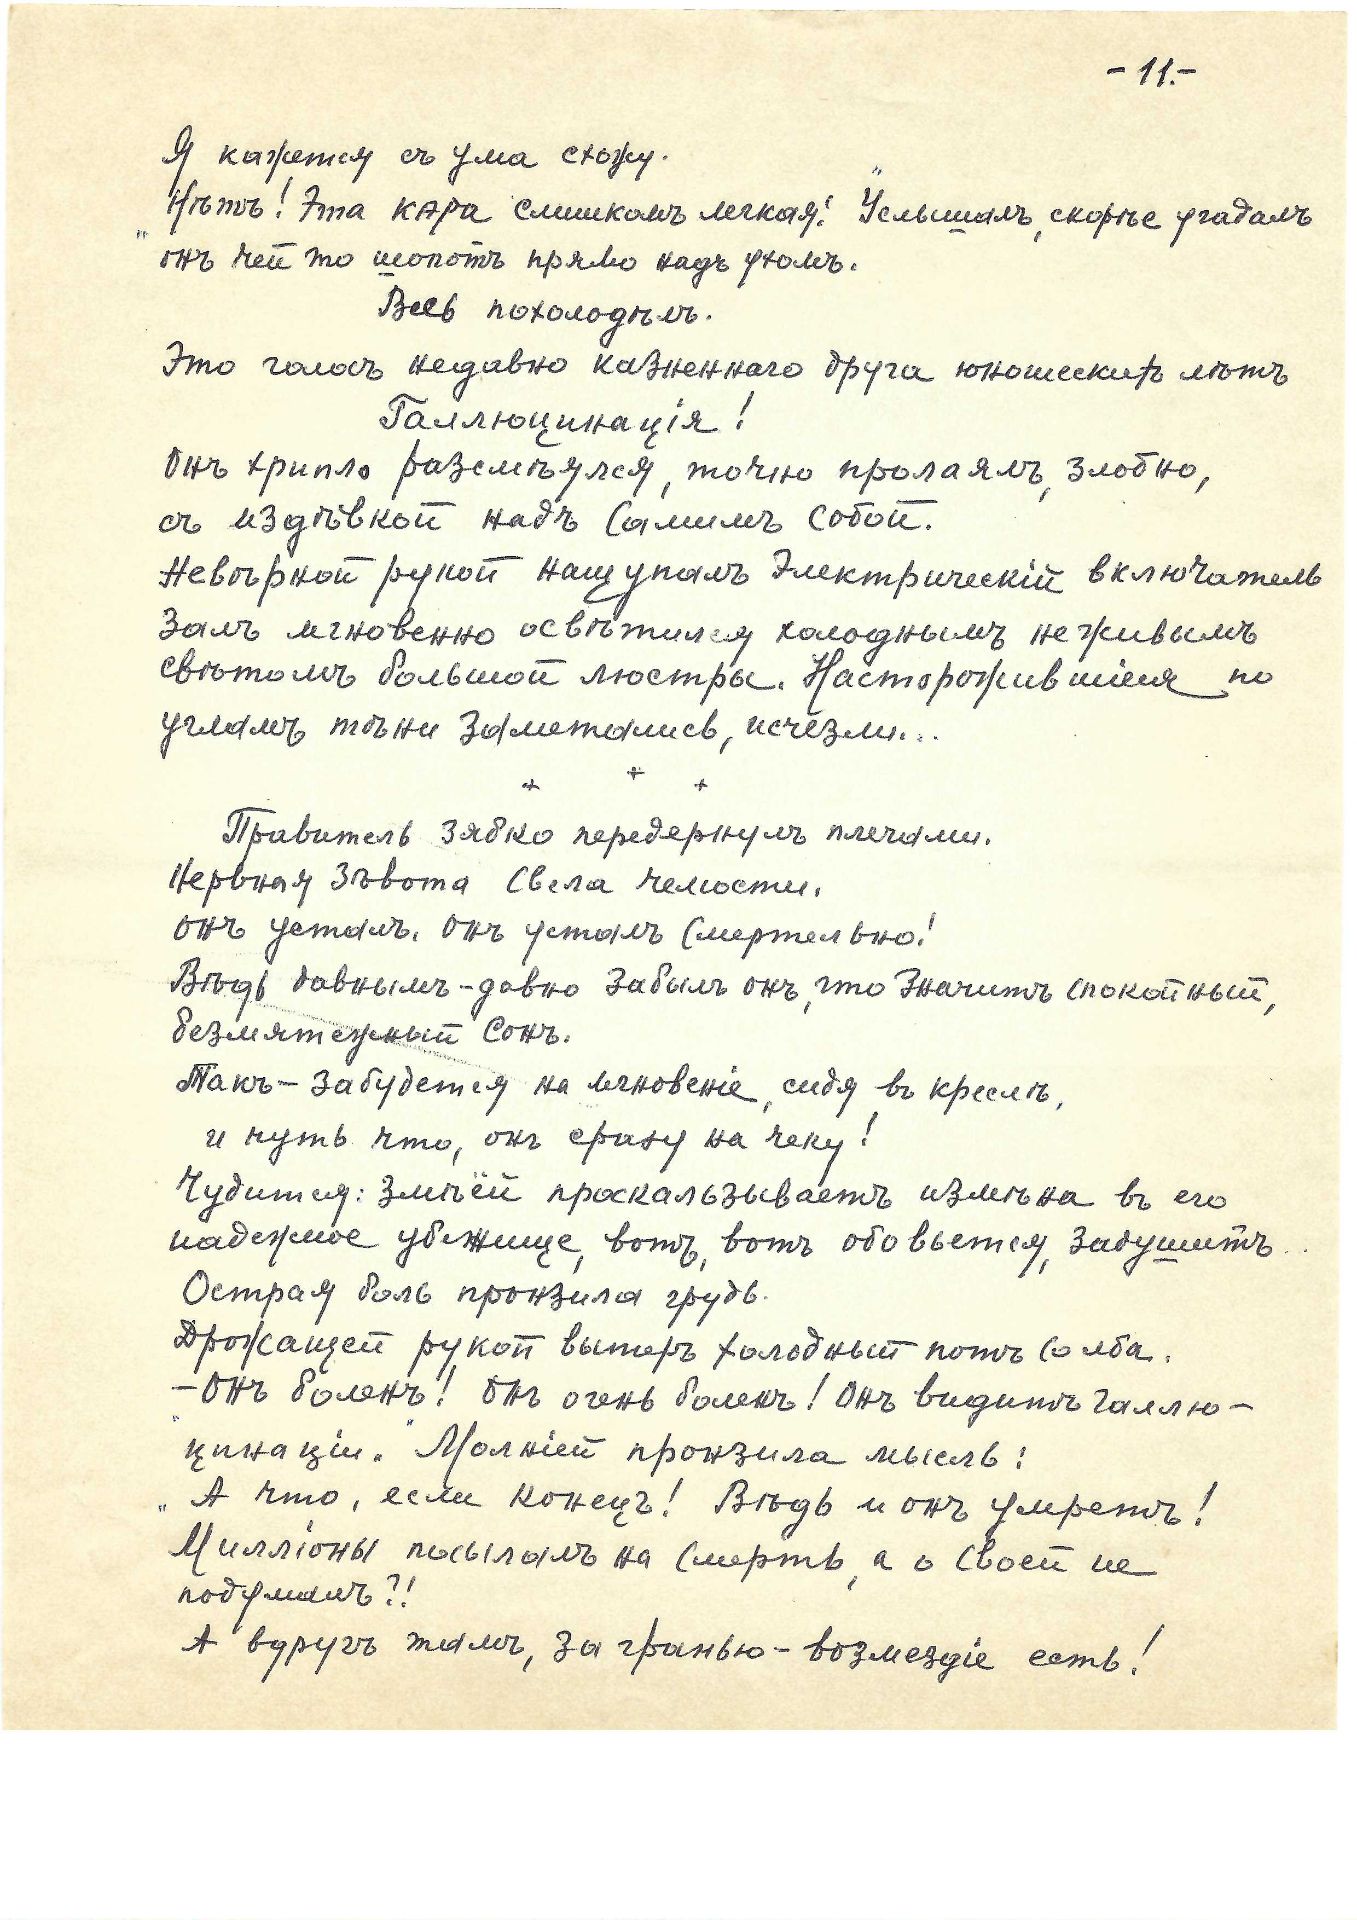 - 11.-
Я кажется съ ума схожу.
„Нѣтъ! Эта кара слишкомъ легкая!“ Услышалъ, скорѣе угадалъ
онъ чей то шопотъ прямо надъ ухомъ.
Весь похолодѣлъ.
Это голосъ недавно казненнаго друга юношескихъ лѣтъ
Галлюцинація!
Онъ хрипло разсмѣялся, точно пролаялъ, злобно,
съ издѣвкой надъ самимъ собой.
Невѣрной рукой нащупалъ электрическій включатель
Залъ мгновенно освѣтился холоднымъ неживымъ
свѣтомъ большой люстры. Насторожившіеся по
угламъ тѣни заметались, исчезли...
+ + +
Правитель зябко передернулъ плечами.
Нервная зѣвота свела челюсти.
Онъ усталъ. Онъ усталъ смертельно!
Вѣдь давнымъ-давно забылъ онъ, что значитъ спокойный,
безмятежный сонъ.
Такъ - забудется на мгновеніе, сидя въ креслѣ,
и чуть что, онъ сразу на чеку!
Чудится: змѣёй проскальзываетъ измѣна въ его
надежное убежище, вотъ, вотъ обовьется, задушитъ...
Острая боль пронзила грудь.
Дрожащей рукой вытеръ холодный потъ со лба.
- Онъ боленъ! Онъ очень боленъ! Онъ видитъ галлю-
„цинаціи.“ Молніей пронзила мысль:
„А что, если конецъ! Вѣдь и онъ умретъ!
Милліоны посылалъ на смерть, а о своей не
подумалъ?!
А вдругъ тамъ, за гранью - возмездіе есть!